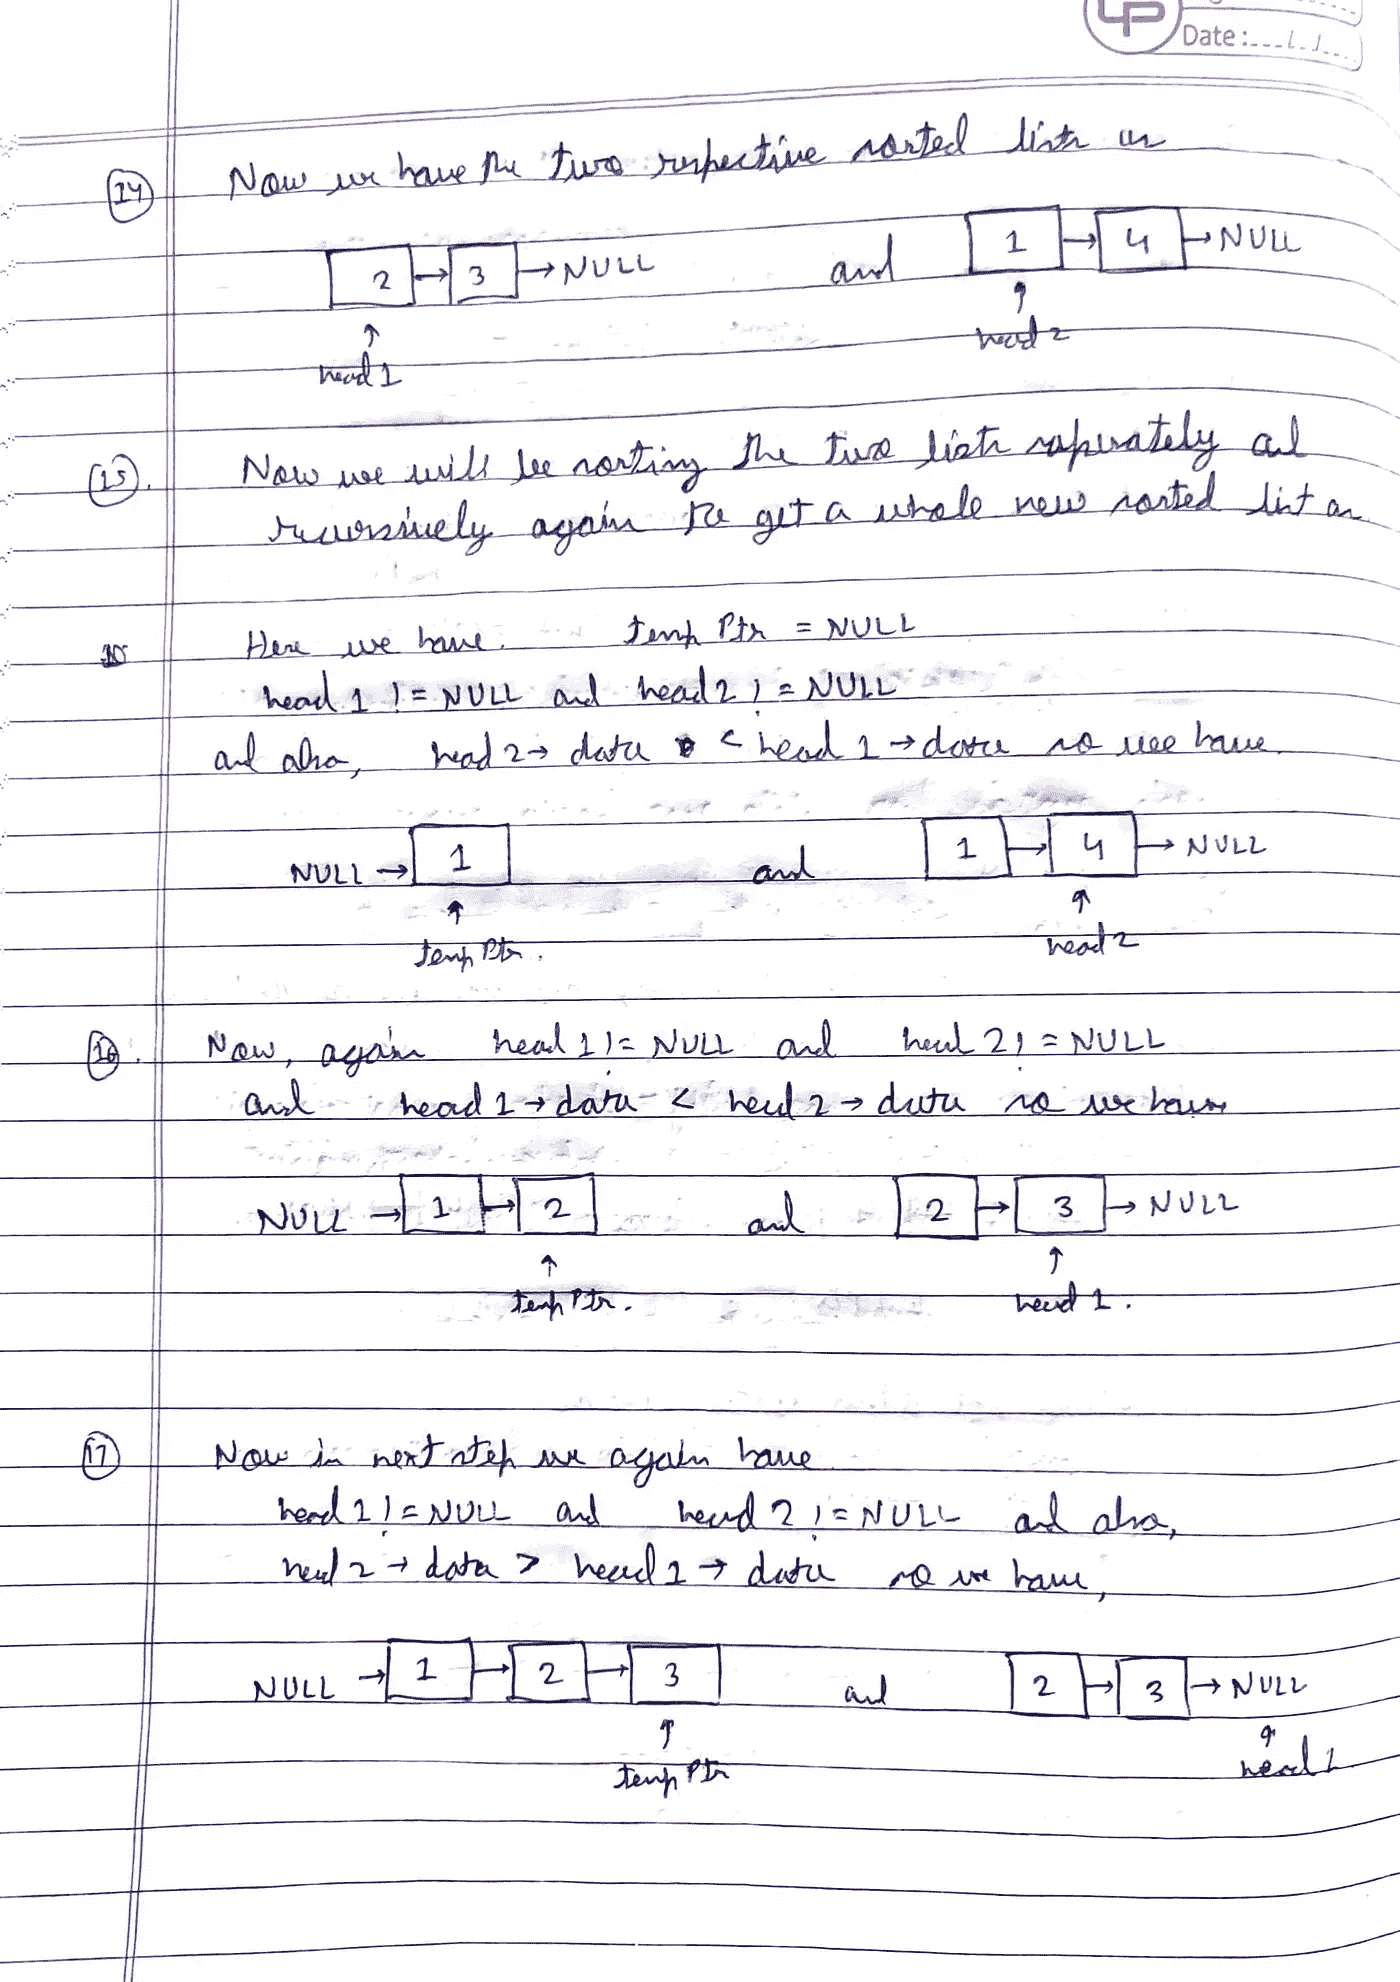 Date :
14 Now we have the two respective sorted lists as
2 → 3 → NULL and 1 → 4 → NULL
↑ head 1 ↑ head 2
15. Now we will be sorting the two lists separately and
recursively again to get a whole new sorted list as
Here we have. temp Ptr = NULL
head 1 != NULL and head 2 != NULL
and also, head 2 → data < head 1 → data so we have.
NULL → 1 and 1 → 4 → NULL
↑ temp Ptr. ↑ head 2
16. Now, again head 1 != NULL and head 2 != NULL
and head 1 → data < head 2 → data so we have
NULL → 1 → 2 and 2 → 3 → NULL
↑ temp Ptr. ↑ head 1.
17 Now in next step we again have
head 1 != NULL and head 2 != NULL and also,
head 2 → data > head 1 → data so we have,
NULL → 1 → 2 → 3 and 2 → 3 → NULL
↑ temp Ptr ↑ head 1